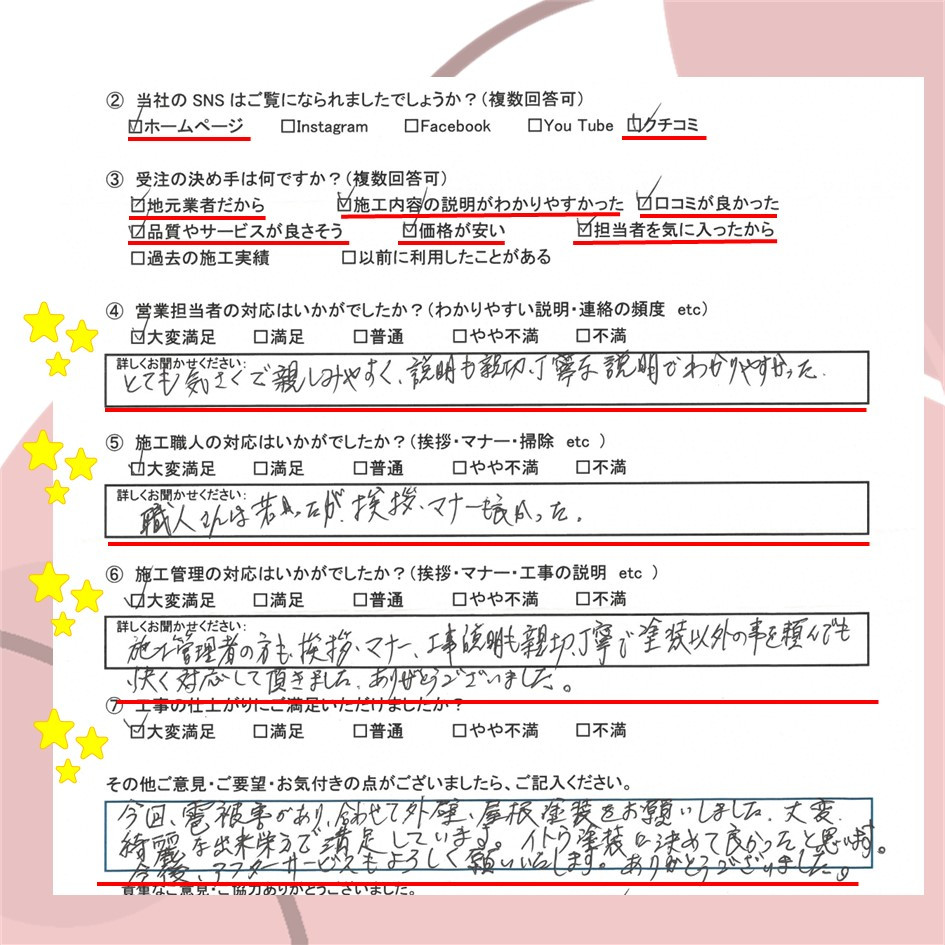 ② 当社の SNS はご覧になられましたでしょうか？（複数回答可）
☑ホームページ □Instagram □Facebook □You Tube ☑クチコミ
③ 受注の決め手は何ですか？（複数回答可）
☑地元業者だから ☑施工内容の説明がわかりやすかった ☑口コミが良かった
☑品質やサービスが良さそう ☑価格が安い ☑担当者を気に入ったから
□過去の施工実績 □以前に利用したことがある
④ 営業担当者の対応はいかがでしたか？（わかりやすい説明・連絡の頻度 etc）
☑大変満足 □満足 □普通 □やや不満 □不満
詳しくお聞かせください：
とても気さくで親しみやすく、説明も親切、丁寧な説明でわかりやすかった.
⑤ 施工職人の対応はいかがでしたか？（挨拶・マナー・掃除 etc ）
☑大変満足 □満足 □普通 □やや不満 □不満
詳しくお聞かせください：
職人さんは若かったが、挨拶、マナーも良かった。
⑥ 施工管理の対応はいかがでしたか？（挨拶・マナー・工事の説明 etc ）
☑大変満足 □満足 □普通 □やや不満 □不満
詳しくお聞かせください：
施工管理者の方も、挨拶、マナー、工事説明も親切、丁寧で塗装以外の事を頼んでも
快く対応して頂きました、ありがとうございました。
⑦ 工事の仕上がりにご満足いただけましたか？
☑大変満足 □満足 □普通 □やや不満 □不満
その他ご意見・ご要望・お気付きの点がございましたら、ご記入ください。
今回、雹被害があり、合わせて外壁、屋根塗装をお願いしました、大変
綺麗な出来栄えで満足しています。イトウ塗装に決めて良かったと思います。
今後、アフターサービスもよろしく願いいたします。ありがとうございました。
貴重なご意見・ご協力ありがとうございました。